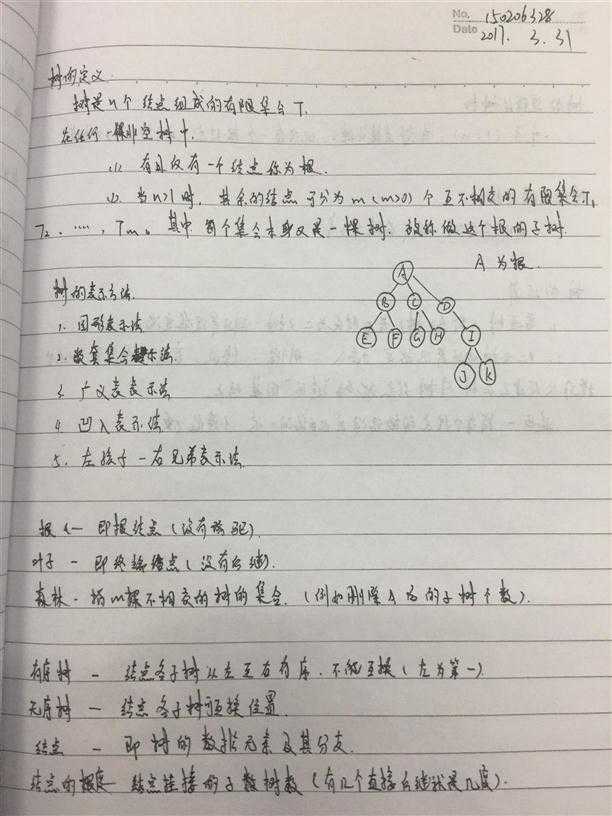 No. 150206328
Date 2017. 3. 31
树的定义.
树是n个结点组成的有限集合T.
在任何一棵非空树中.
(1) 有且仅有一个结点称为根.
(2) 当n>1时, 其余的结点可分为m(m>0)个互不相交的有限集合T1
T2. ……, Tm。 其中每个集合本身又是一棵树. 故称做这个根的子树.
A为根.
A
B C D
E F G H I
J K
树的表示方法.
1. 图形表示法
2. 嵌套集合表示法.
3. 广义表表示法
4. 凹入表示法
5. 左孩子-右兄弟表示法
根 — 即根结点(没有前驱).
叶子 - 即终端结点(没有后继).
森林 - 指m棵不相交的树的集合. (例如删除A后的子树个数).
有序树 - 结点各子树从左至右有序. 不能互换(左为第一)
无序树 - 结点各子树可互换位置.
结点 - 即树的数据元素及其分支.
结点的度 结点挂接的子树数(有几个直接后继就是几度).